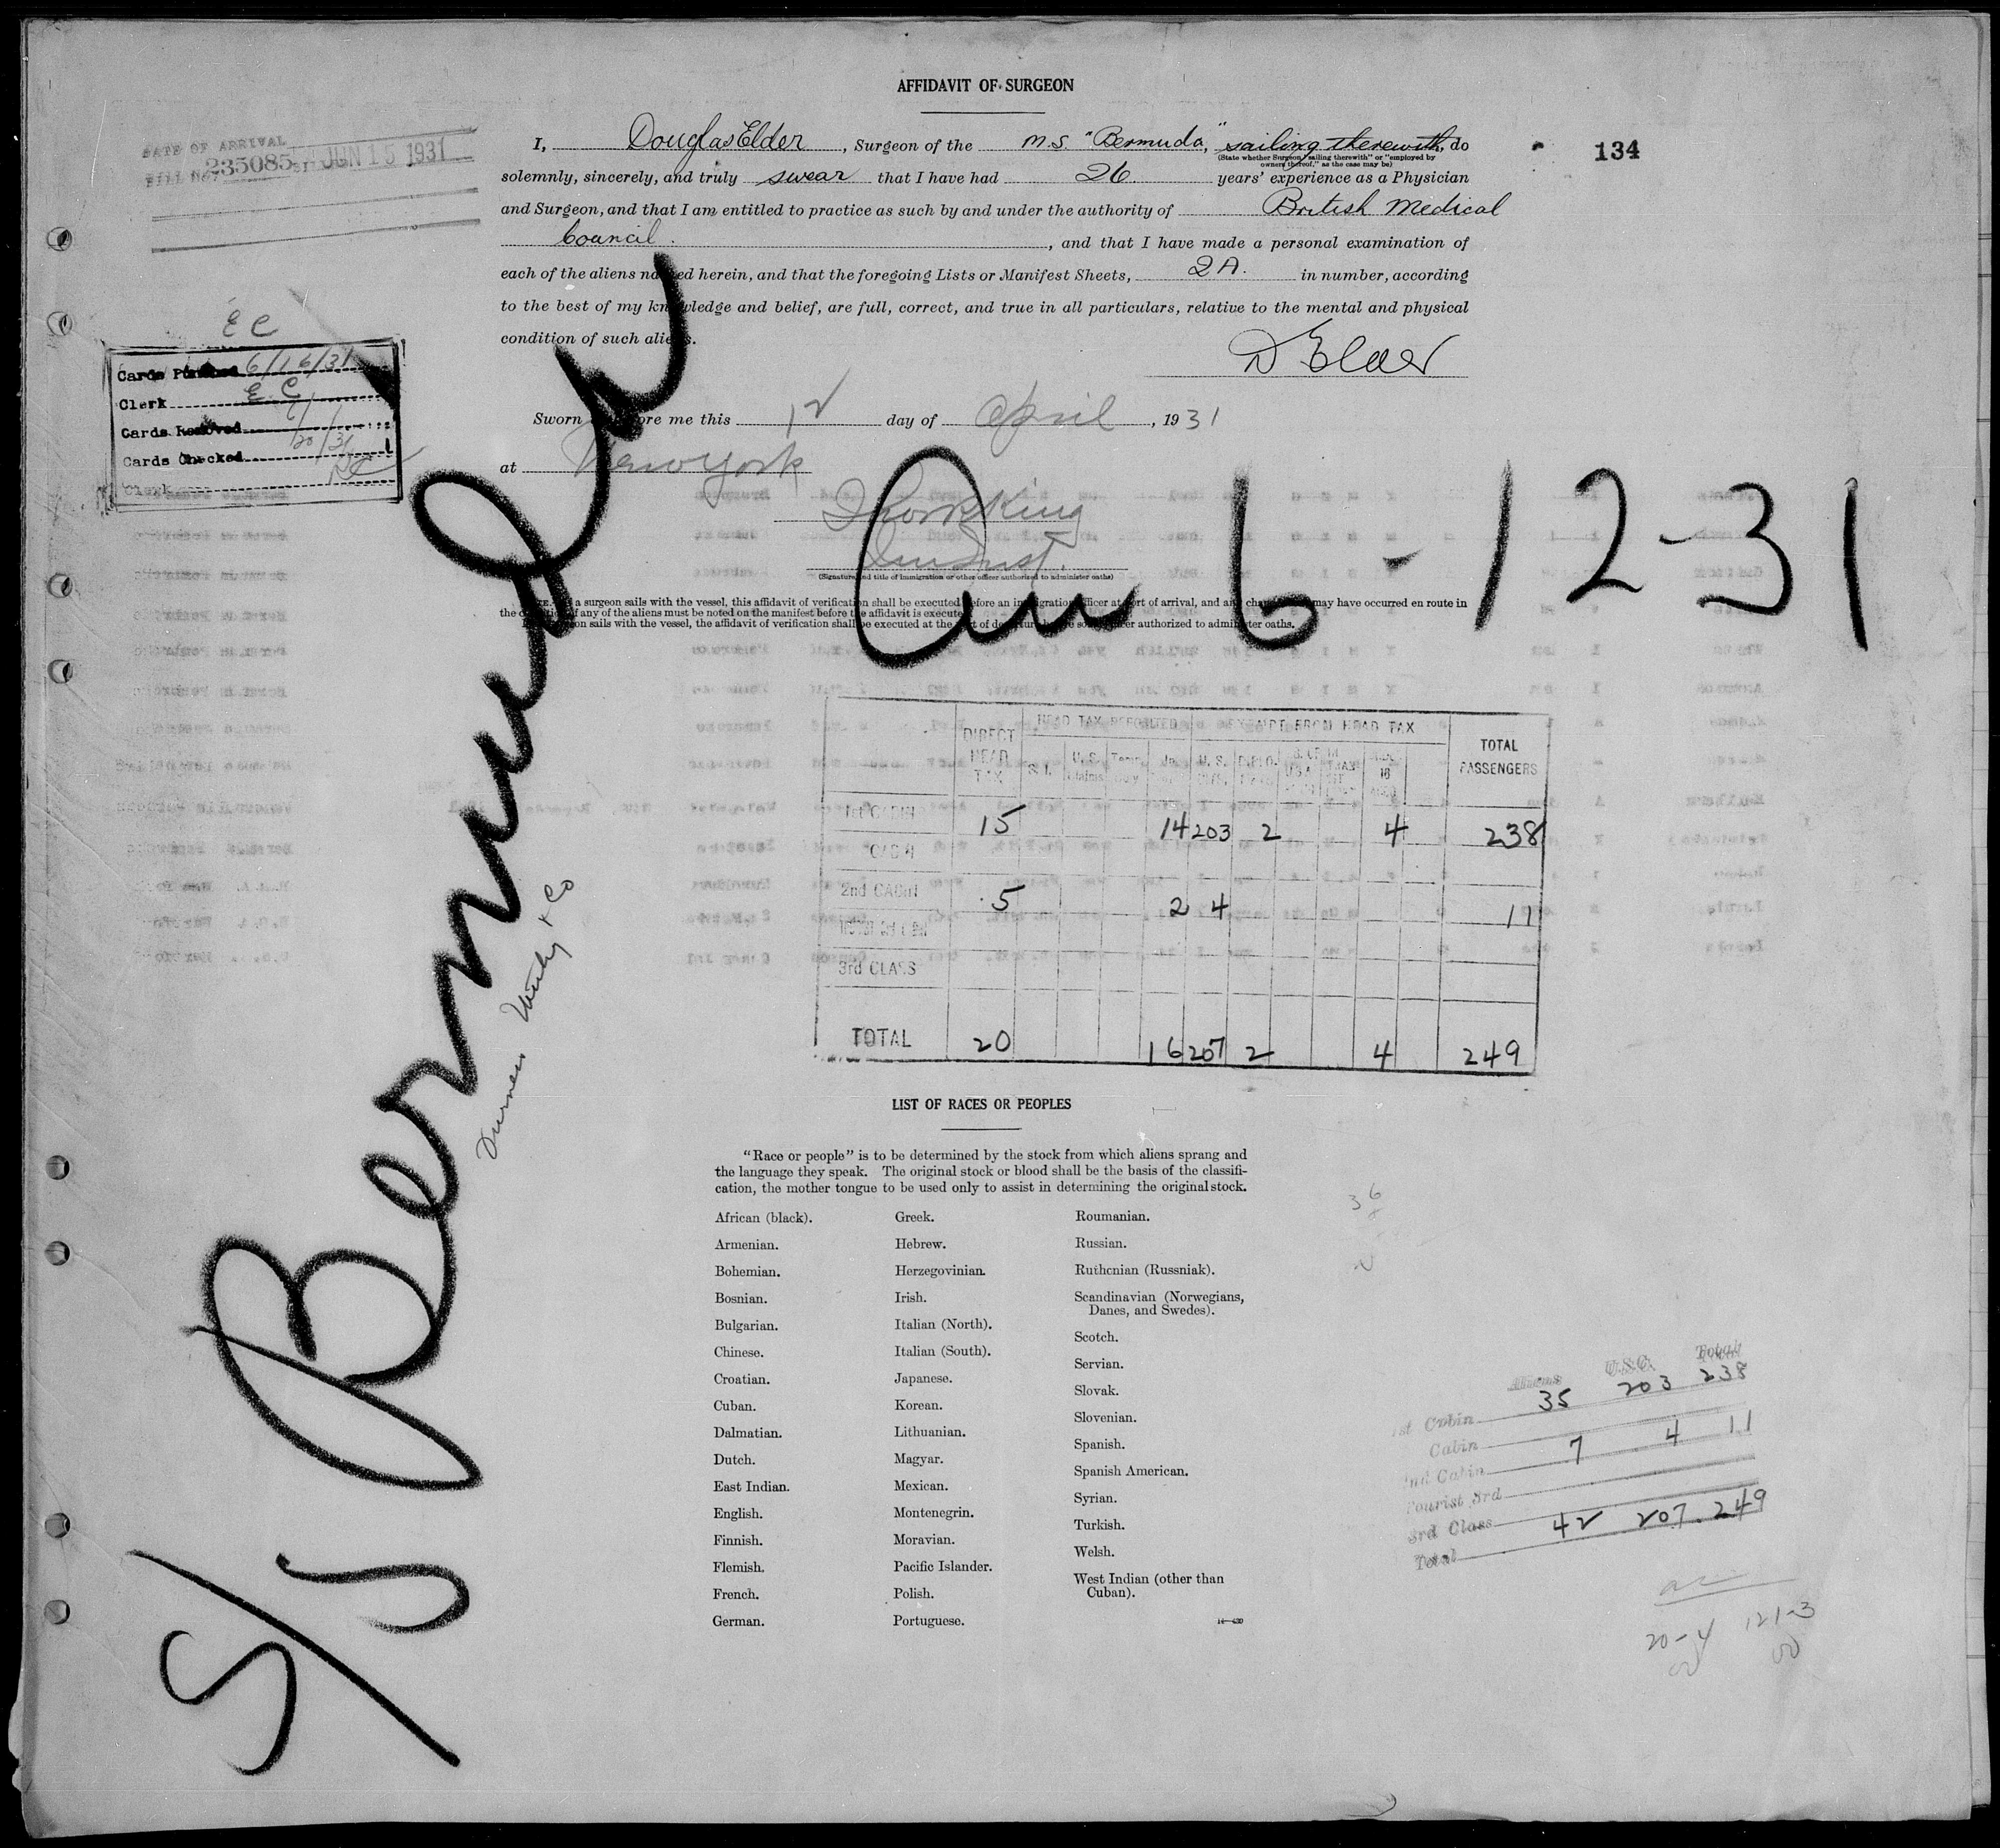 AFFIDAVIT OF SURGEON
DATE OF ARRIVAL
BILL No. 235085 JUN 15 1931
134
I, Douglas Elder, Surgeon of the M.S. "Bermuda," sailing therewith, do
(State whether Surgeon "sailing therewith" or "employed by
owners thereof," as the case may be)
solemnly, sincerely, and truly swear that I have had 26 years' experience as a Physician
and Surgeon, and that I am entitled to practice as such by and under the authority of British Medical
Council., and that I have made a personal examination of
each of the aliens named herein, and that the foregoing Lists or Manifest Sheets, 2A. in number, according
to the best of my knowledge and belief, are full, correct, and true in all particulars, relative to the mental and physical
condition of such aliens.
D Elder
E C
Cards Punched 6/16/31
Clerk E C
Cards Removed
Cards Checked
Clerk
Sworn before me this 12 day of April, 1931
at New York
King
(Signature and title of immigration or other officer authorized to administer oaths)
Arr 6-12-31
S/S Bermuda
Furness Withy & Co
NOTE.—If a surgeon sails with the vessel, this affidavit of verification shall be executed before an immigration officer at port of arrival, and any changes may have occurred en route in
the condition of any of the aliens must be noted on the manifest before the affidavit is executed
sails with the vessel, the affidavit of verification shall be executed at the port of departure before some officer authorized to administer oaths.
DIRECT HEAD TAX
HEAD TAX DEPOSITED
EXEMPT FROM HEAD TAX
TOTAL PASSENGERS
1st CABIN 15 14 203 2 4 238
CABIN
2nd CABIN 5 2 4 11
3rd CLASS
TOTAL 20 16 207 2 4 249
LIST OF RACES OR PEOPLES
"Race or people" is to be determined by the stock from which aliens sprang and
the language they speak. The original stock or blood shall be the basis of the classifi-
cation, the mother tongue to be used only to assist in determining the original stock.
African (black).
Armenian.
Bohemian.
Bosnian.
Bulgarian.
Chinese.
Croatian.
Cuban.
Dalmatian.
Dutch.
East Indian.
English.
Finnish.
Flemish.
French.
German.
Greek.
Hebrew.
Herzegovinian.
Irish.
Italian (North).
Italian (South).
Japanese.
Korean.
Lithuanian.
Magyar.
Mexican.
Montenegrin.
Moravian.
Pacific Islander.
Polish.
Portuguese.
Roumanian.
Russian.
Ruthenian (Russniak).
Scandinavian (Norwegians,
Danes, and Swedes).
Scotch.
Servian.
Slovak.
Slovenian.
Spanish.
Spanish American.
Syrian.
Turkish.
Welsh.
West Indian (other than
Cuban).
Aliens U.S.C. Total
1st Cabin 35 203 238
Cabin
2nd Cabin 7 4 11
Tourist 3rd
3rd Class
Total 42 207 249
20-4 121-3